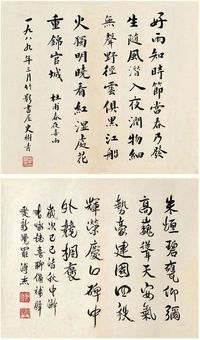 好雨知時節當春乃發
生隨風潛入夜潤物細
無聲野徑雲俱黑江船
火獨明曉看紅濕處花
重錦官城 杜甫春夜喜雨
一九八九年三月竹影書屋史樹青
朱垣碧甍仰彌
高巍聳天安氣
勢豪建國四秩
輝榮慶口碑中
外競揄褒
歲次己巳清秋中澣
誌喜聊備補壁
愛新覺羅溥杰